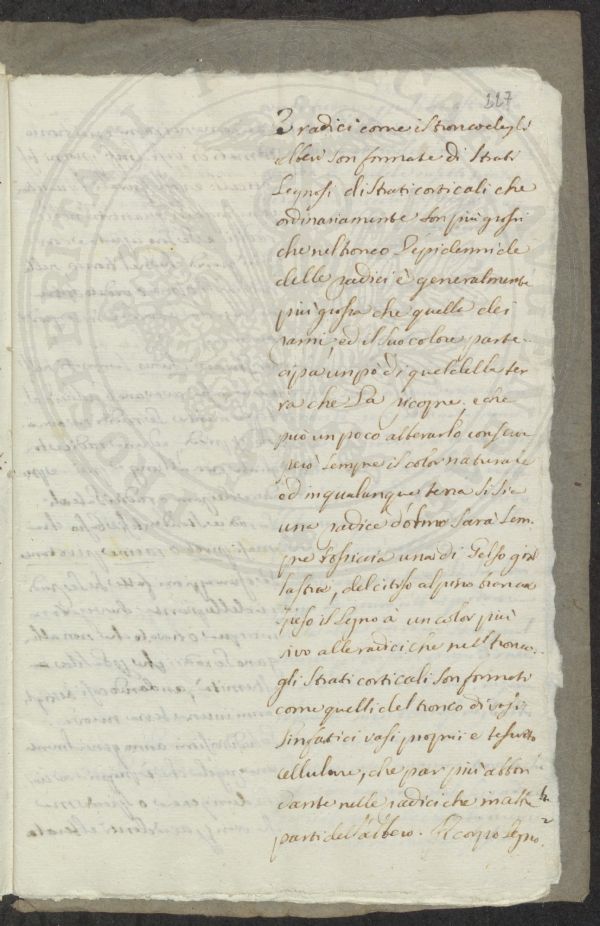 117
Le radici come il tronco degli
alberi son formate di strati
Legnosi di strati corticali che
ordinariamente son più grossi
che nel tronco L'epidermide
delle radici è generalmente
più grossa che quella dei
rami, ed il suo colore parte-
cipa un pò di quel della ter
ra che La ricopre, e che
può un poco alterarlo, conserva
però sempre il color naturale
ed in qualunque terra si sia
una radice d'olmo sarà sem-
pre rossiccia una di Gelso gial
lastra, del citiso alpino bianca
il Legno à un color più
vivo alle radici che nel tronco.
gli strati corticali son formati
come quelli del tronco di vasi
Linfatici vasi proprii e tessuto
cellulare, che par più abbon
dante nelle radici che in altre
parti dell'albero. Il corpo Legno